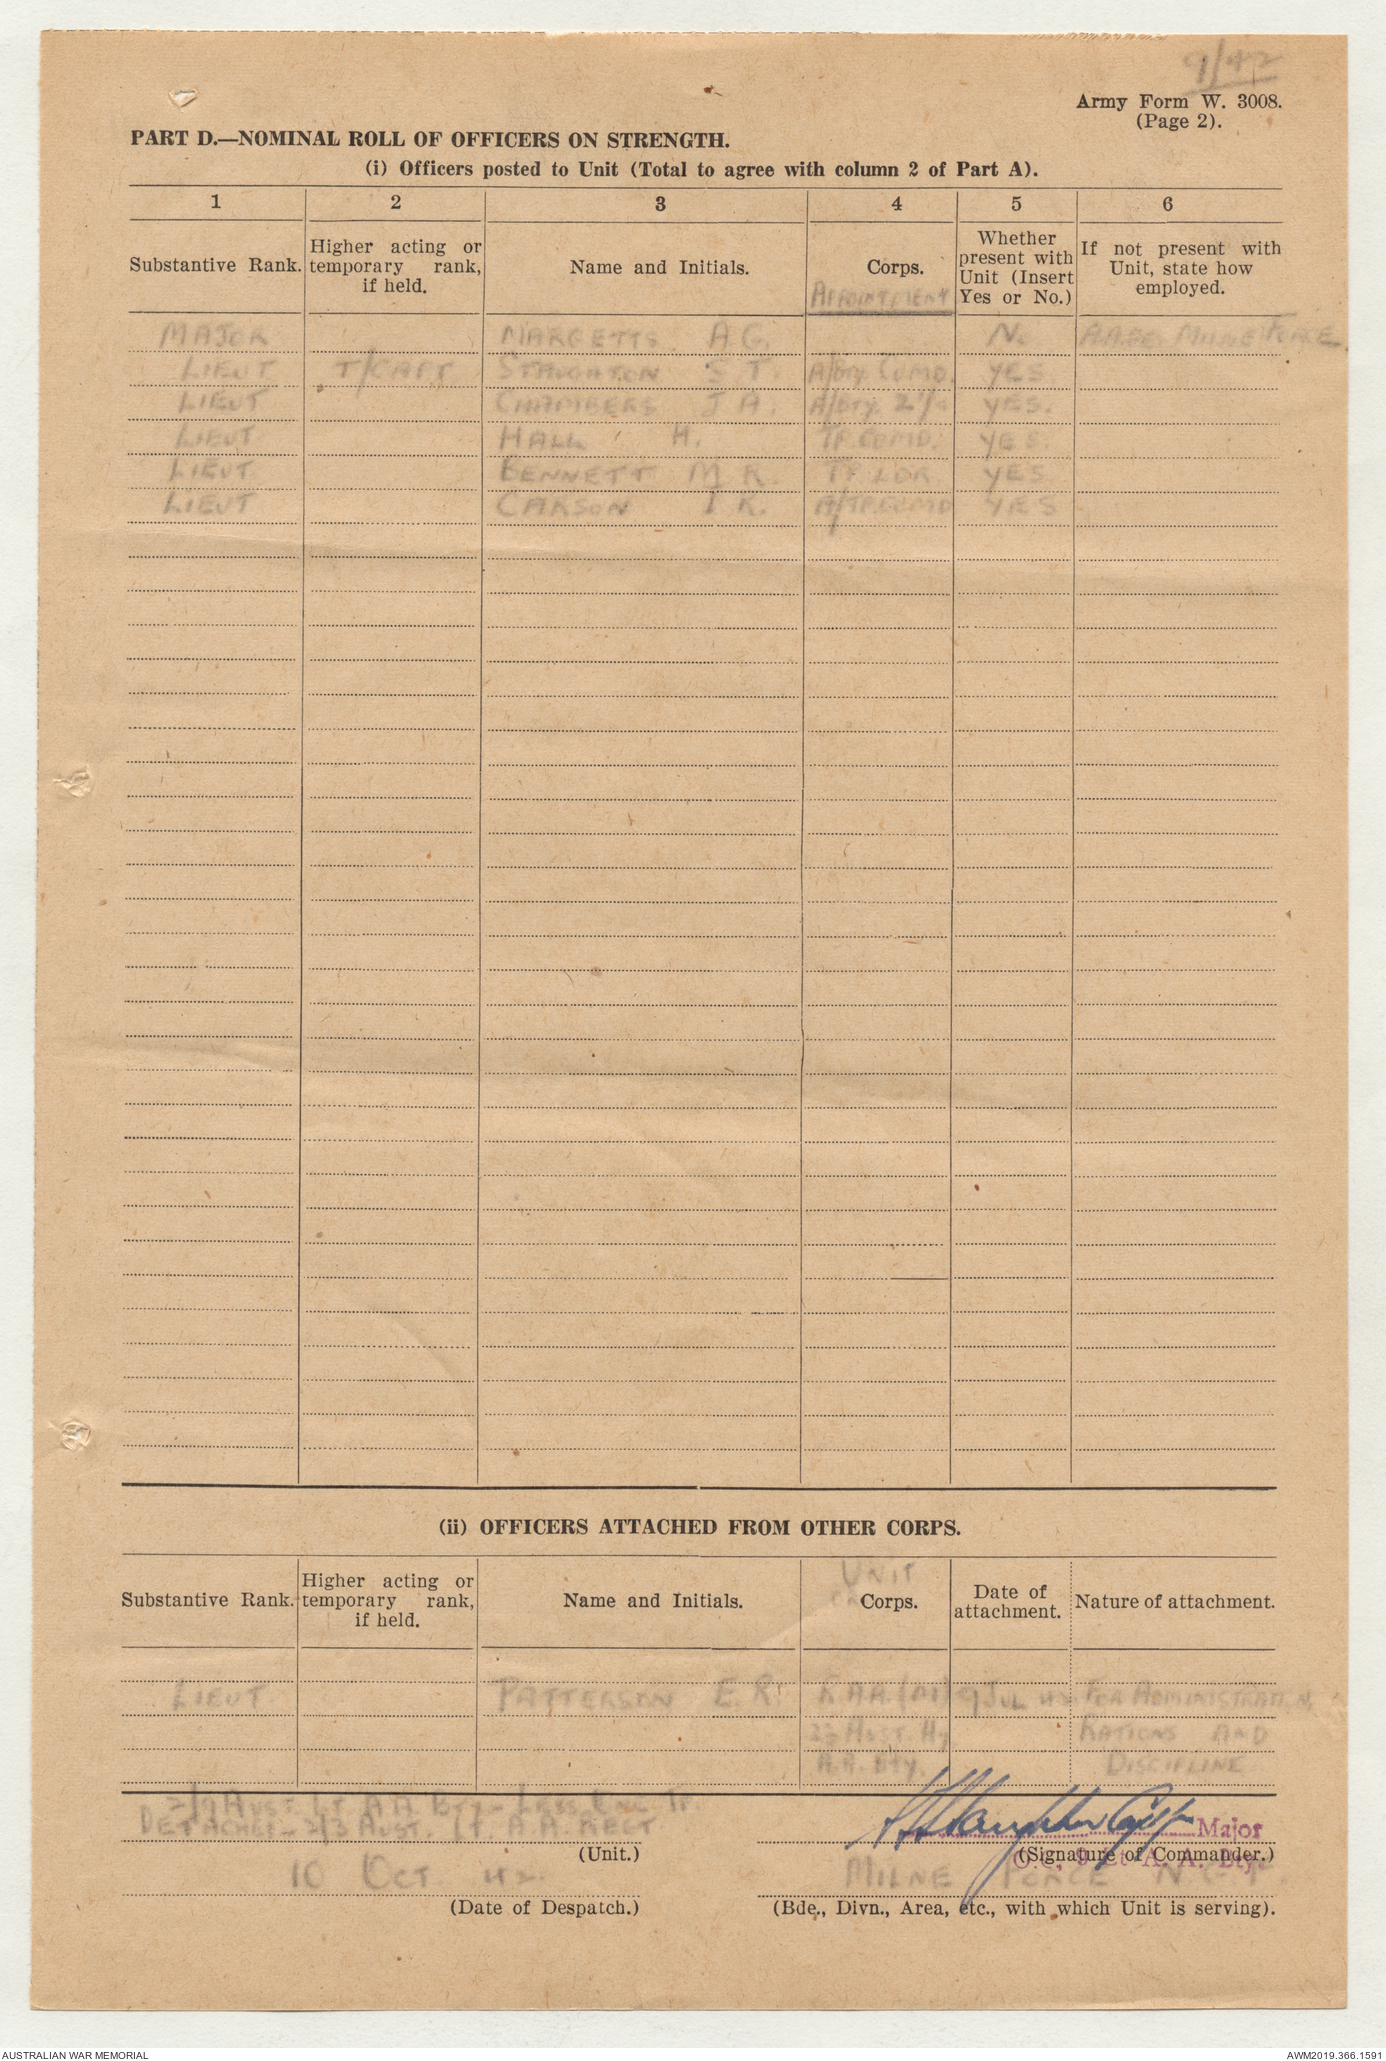 9/42
Army Form W. 3008.
(Page 2).
PART D.—NOMINAL ROLL OF OFFICERS ON STRENGTH.
(i) Officers posted to Unit (Total to agree with column 2 of Part A).
1 2 3 4 5 6
Substantive Rank. Higher acting or temporary rank, if held. Name and Initials. Corps. APPOINTMENT Whether present with Unit (Insert Yes or No.) If not present with Unit, state how employed.
MAJOR MARGETTS A.G. No MILNE FORCE.
LIEUT T/CAPT STAUGHTON S T. A/Bty. COMD. YES.
LIEUT CHAMBERS J A. A/Bty. 2 i/c YES.
LIEUT HALL H. TP. COMD. YES.
LIEUT BENNETT M R. TP LDR YES
LIEUT CARSON I R. A/TP.COMD YES
(ii) OFFICERS ATTACHED FROM OTHER CORPS.
UNIT
Substantive Rank. Higher acting or temporary rank, if held. Name and Initials. Corps. Date of attachment. Nature of attachment.
LIEUT PATTERSON E.R. R.A.A. (M) 9 JUL 42. FOR ADMINISTRATION,
23 AUST. Hy. RATIONS AND
A.A. Bty. DISCIPLINE
2/9 AUST LT A A BTY – LESS ONE TP.
DETACHED – 2/3 AUST LT. A.A. REGT
(Unit.)
S T Staughton Capt Major
O.C. 9 Lt A. A. Bty.
(Signature of Commander.)
10 OCT 42.
(Date of Despatch.)
MILNE FORCE N.G.F.
(Bde., Divn., Area, etc., with which Unit is serving).
AUSTRALIAN WAR MEMORIAL AWM2019.366.1591